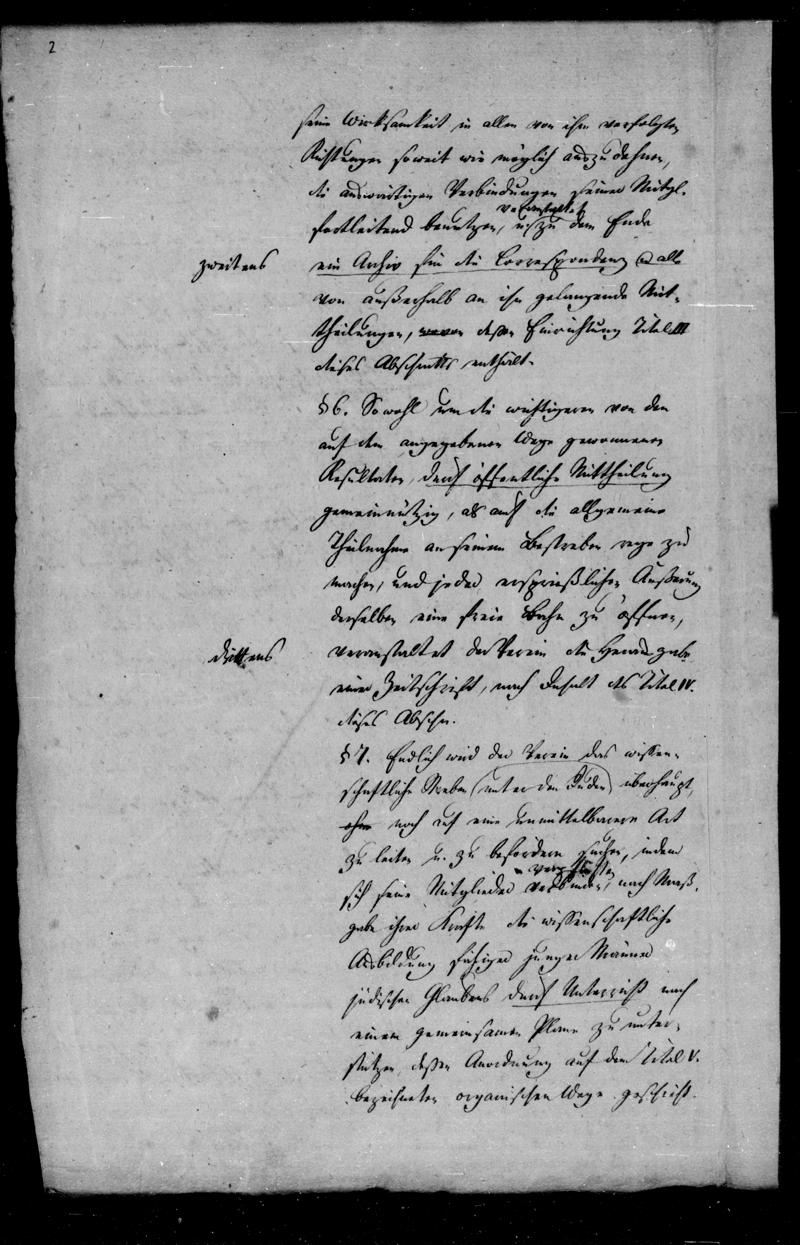 2
seine Wirksamkeit in allen von ihm verfolgten
Richtungen soweit wie möglich auszudehnen,
die auswärtigen Verbindungen seiner Mitgl.
fortleitend benutzen, u. zu dem Ende
veranstaltet
zweitens
ein Archiv für die Correspondenz u alle
von außerhalb an ihn gelangende Mit-
theilungen, wovon dessen Einrichtung Titel III
dieses Abschnitts enthält.
§ 6. Sowohl um die wichtigeren von den
auf dem angegebenen Wege gewonnenen
Resultaten, durch öffentliche Mittheilung
gemeinnützig, als auch die allgemeine
Theilnahme an seinem Bestreben rege zu
machen, und jeder ersprießlichen Äußerung
derselben eine freie Bahn zu öffnen,
drittens
veranstaltet der Verein die Herausgabe
einer Zeitschrift, nach Inhalt des Titel IV.
dieses Abschn.
§ 7. Endlich wird der Verein das wissen-
schaftliche Streben (unter den Juden) überhaupt,
ohne noch auf eine unmittelbarere Art
zu leiten u. zu befördern suchen, indem
sich seine Mitglieder verbinden, nach Maß-
verpflichten
gabe ihrer Kräfte die wissenschaftliche
Ausbildung fähiger junger Männer
jüdischen Glaubens durch Unterricht nach
einem gemeinsamen Plane zu unter-
stützen, dessen Anordnung auf dem Titel V.
bezeichneten organischen Wege geschieht.